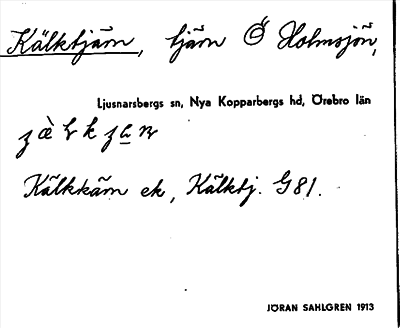 Kälktjärn, tjärn Ö Holmsjön,
Ljusnarsbergs sn, Nya Kopparbergs hd, Örebro län
Kälkkärn ek, Kälktj. G 81.
JÖRAN SAHLGREN 1913